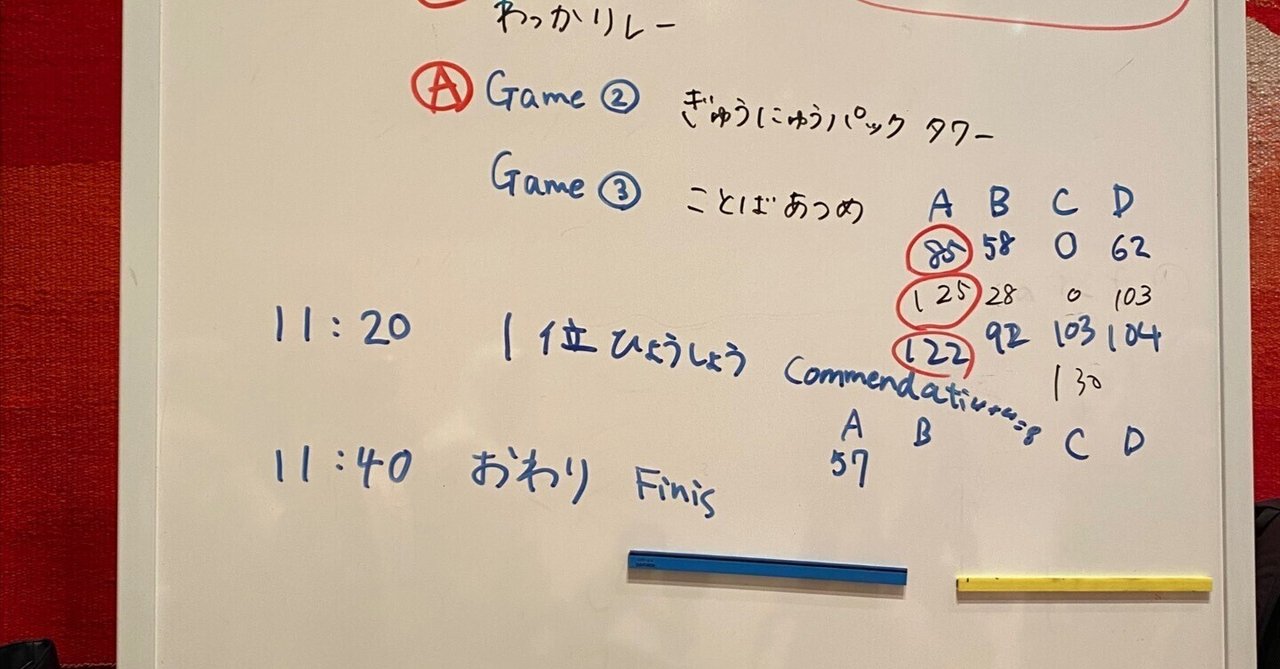 わっかリレー
A Game ② ぎゅうにゅうパック タワー
Game ③ ことばあつめ
A B C D
85 58 0 62
125 28 0 103
122 92 103 104
130
11:20 1位ひょうしょう
A B C D
57
11:40 おわり Finis